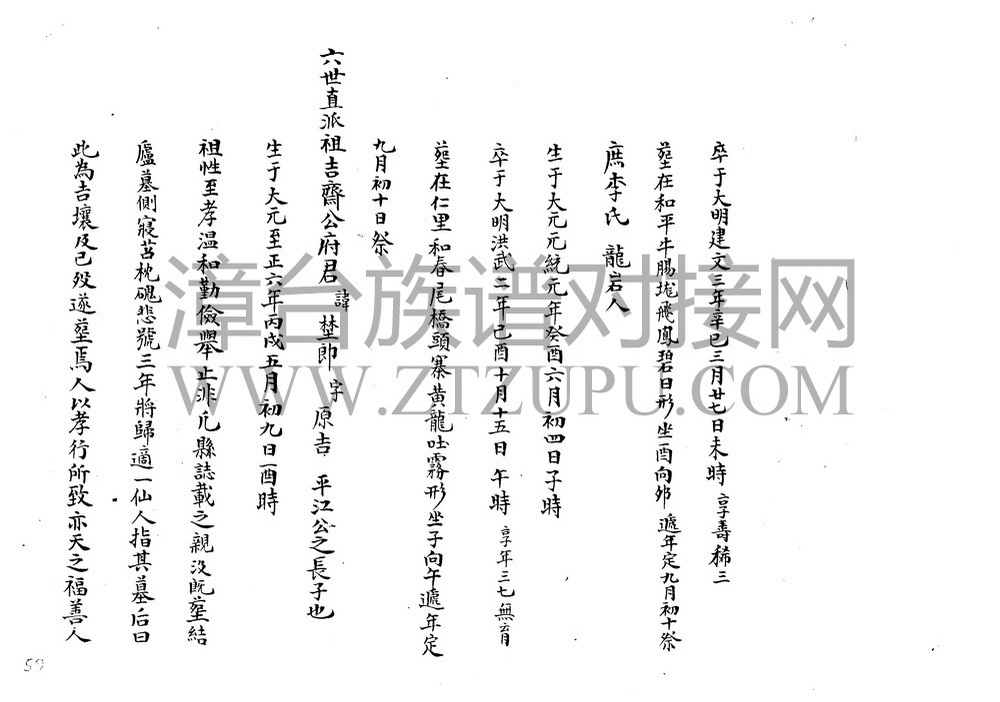 卒于大明建文三年辛巳三月廿七日未時 享壽稀三
塟在和平牛腸垅飛鳳碧日形坐酉向夘 遞年定九月初十祭
庶李氏 龍岩人
生于大元元統元年癸酉六月初四日子時
卒于大明洪武二年己酉十月十五日午時 享年三七無育
塟在仁里和春尾橋頭寨黃龍吐霧形坐子向午遞年定
九月初十日祭
六世直派祖吉齋公府君 諱 埜郎 字 原吉 平江公之長子也
生于大元至正六年丙戌五月初九日酉時
祖性至孝温和勤儉舉止非凡縣誌載之親沒既塟結
廬墓側寢苫枕磈悲號三年將歸適一仙人指其墓后曰
此為吉壤及已歿遂塟焉人以孝行所致亦天之福善人
59
漳台族谱对接网
WWW.ZTZUPU.COM